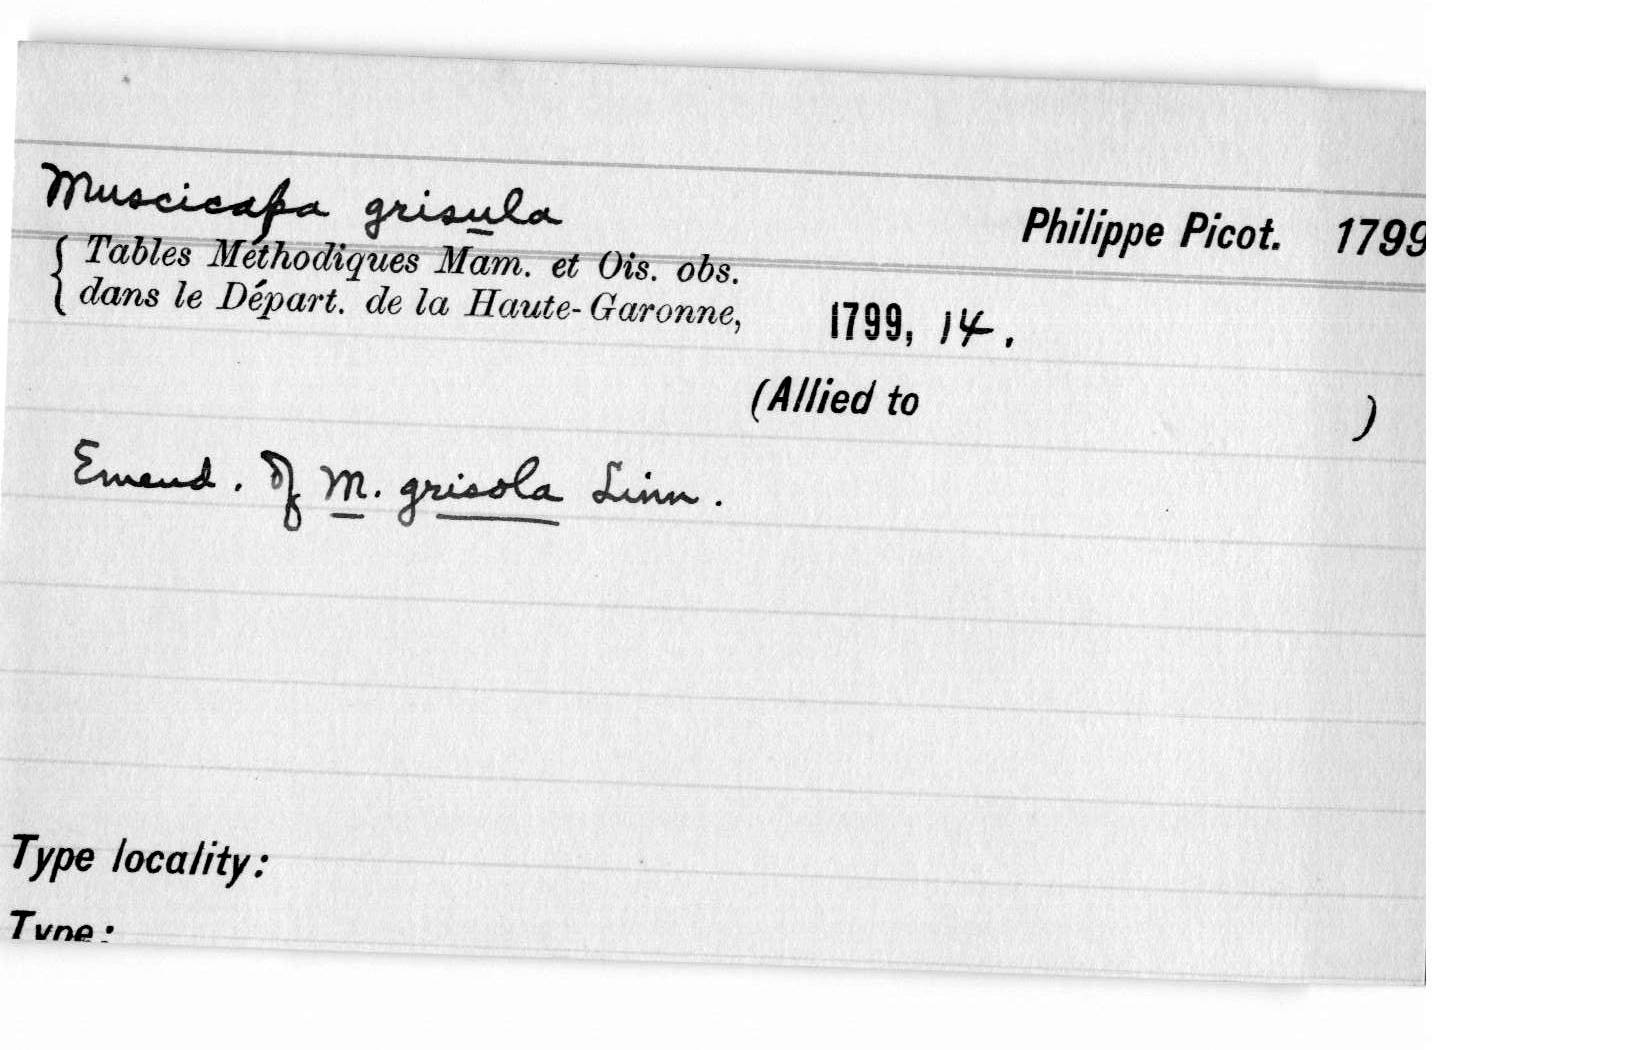 Muscicapa grisula Philippe Picot. 1799
Tables Méthodiques Mam. et Ois. obs.
dans le Départ. de la Haute-Garonne, 1799, 14.
(Allied to )
Emend. of M. grisola Linn.
Type locality:
Type: